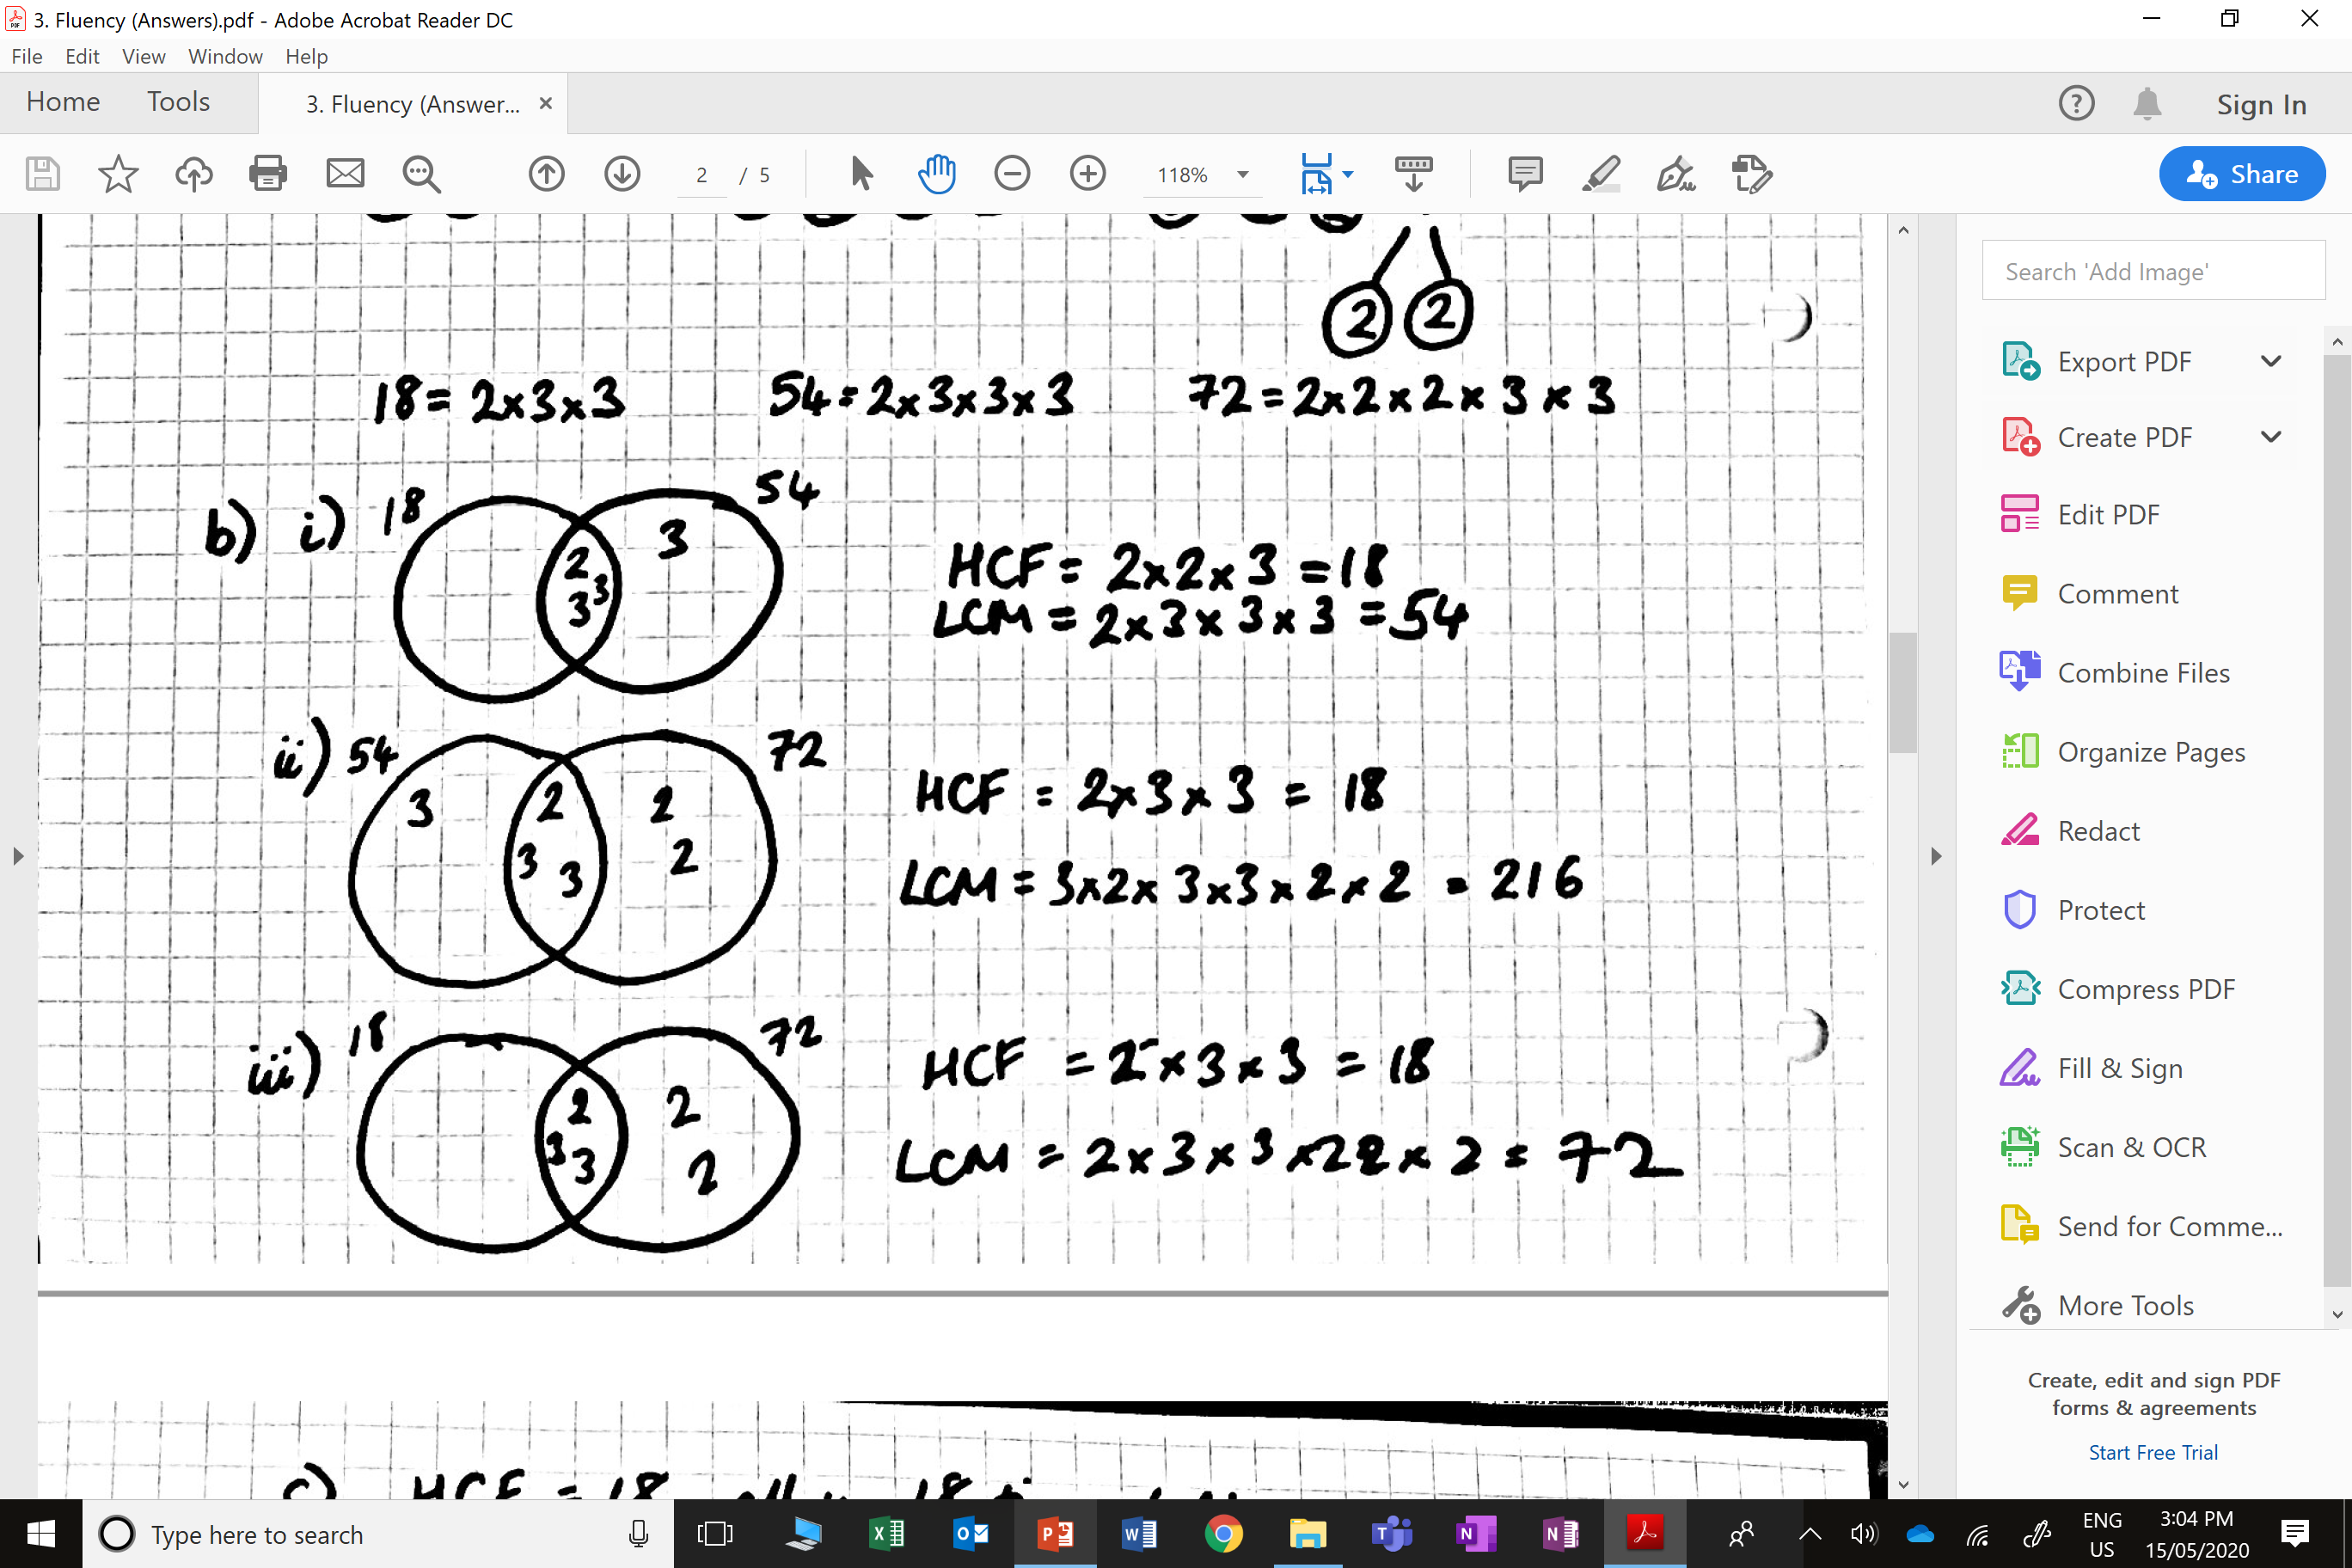 3. Fluency (Answers).pdf - Adobe Acrobat Reader DC
File Edit View Window Help
Home Tools 3. Fluency (Answer... × Sign In
2 / 5 118% Share
2 2
18 = 2×3×3 54 = 2×3×3×3 72 = 2×2×2×3×3
b) i) 18 54
2 3 3 3
HCF = 2×2×3 = 18
LCM = 2×3×3×3 = 54
ii) 54 72
3 2 3 3 2 2
HCF = 2×3×3 = 18
LCM = 3×2×3×3×2×2 = 216
iii) 18 72
2 3 3 2 2
HCF = 2×3×3 = 18
LCM = 2×3×3×22×2 = 72
c) HCF = 18
Search 'Add Image'
Export PDF
Create PDF
Edit PDF
Comment
Combine Files
Organize Pages
Redact
Protect
Compress PDF
Fill & Sign
Scan & OCR
Send for Comme...
More Tools
Create, edit and sign PDF
forms & agreements
Start Free Trial
Type here to search
ENG
US
3:04 PM
15/05/2020